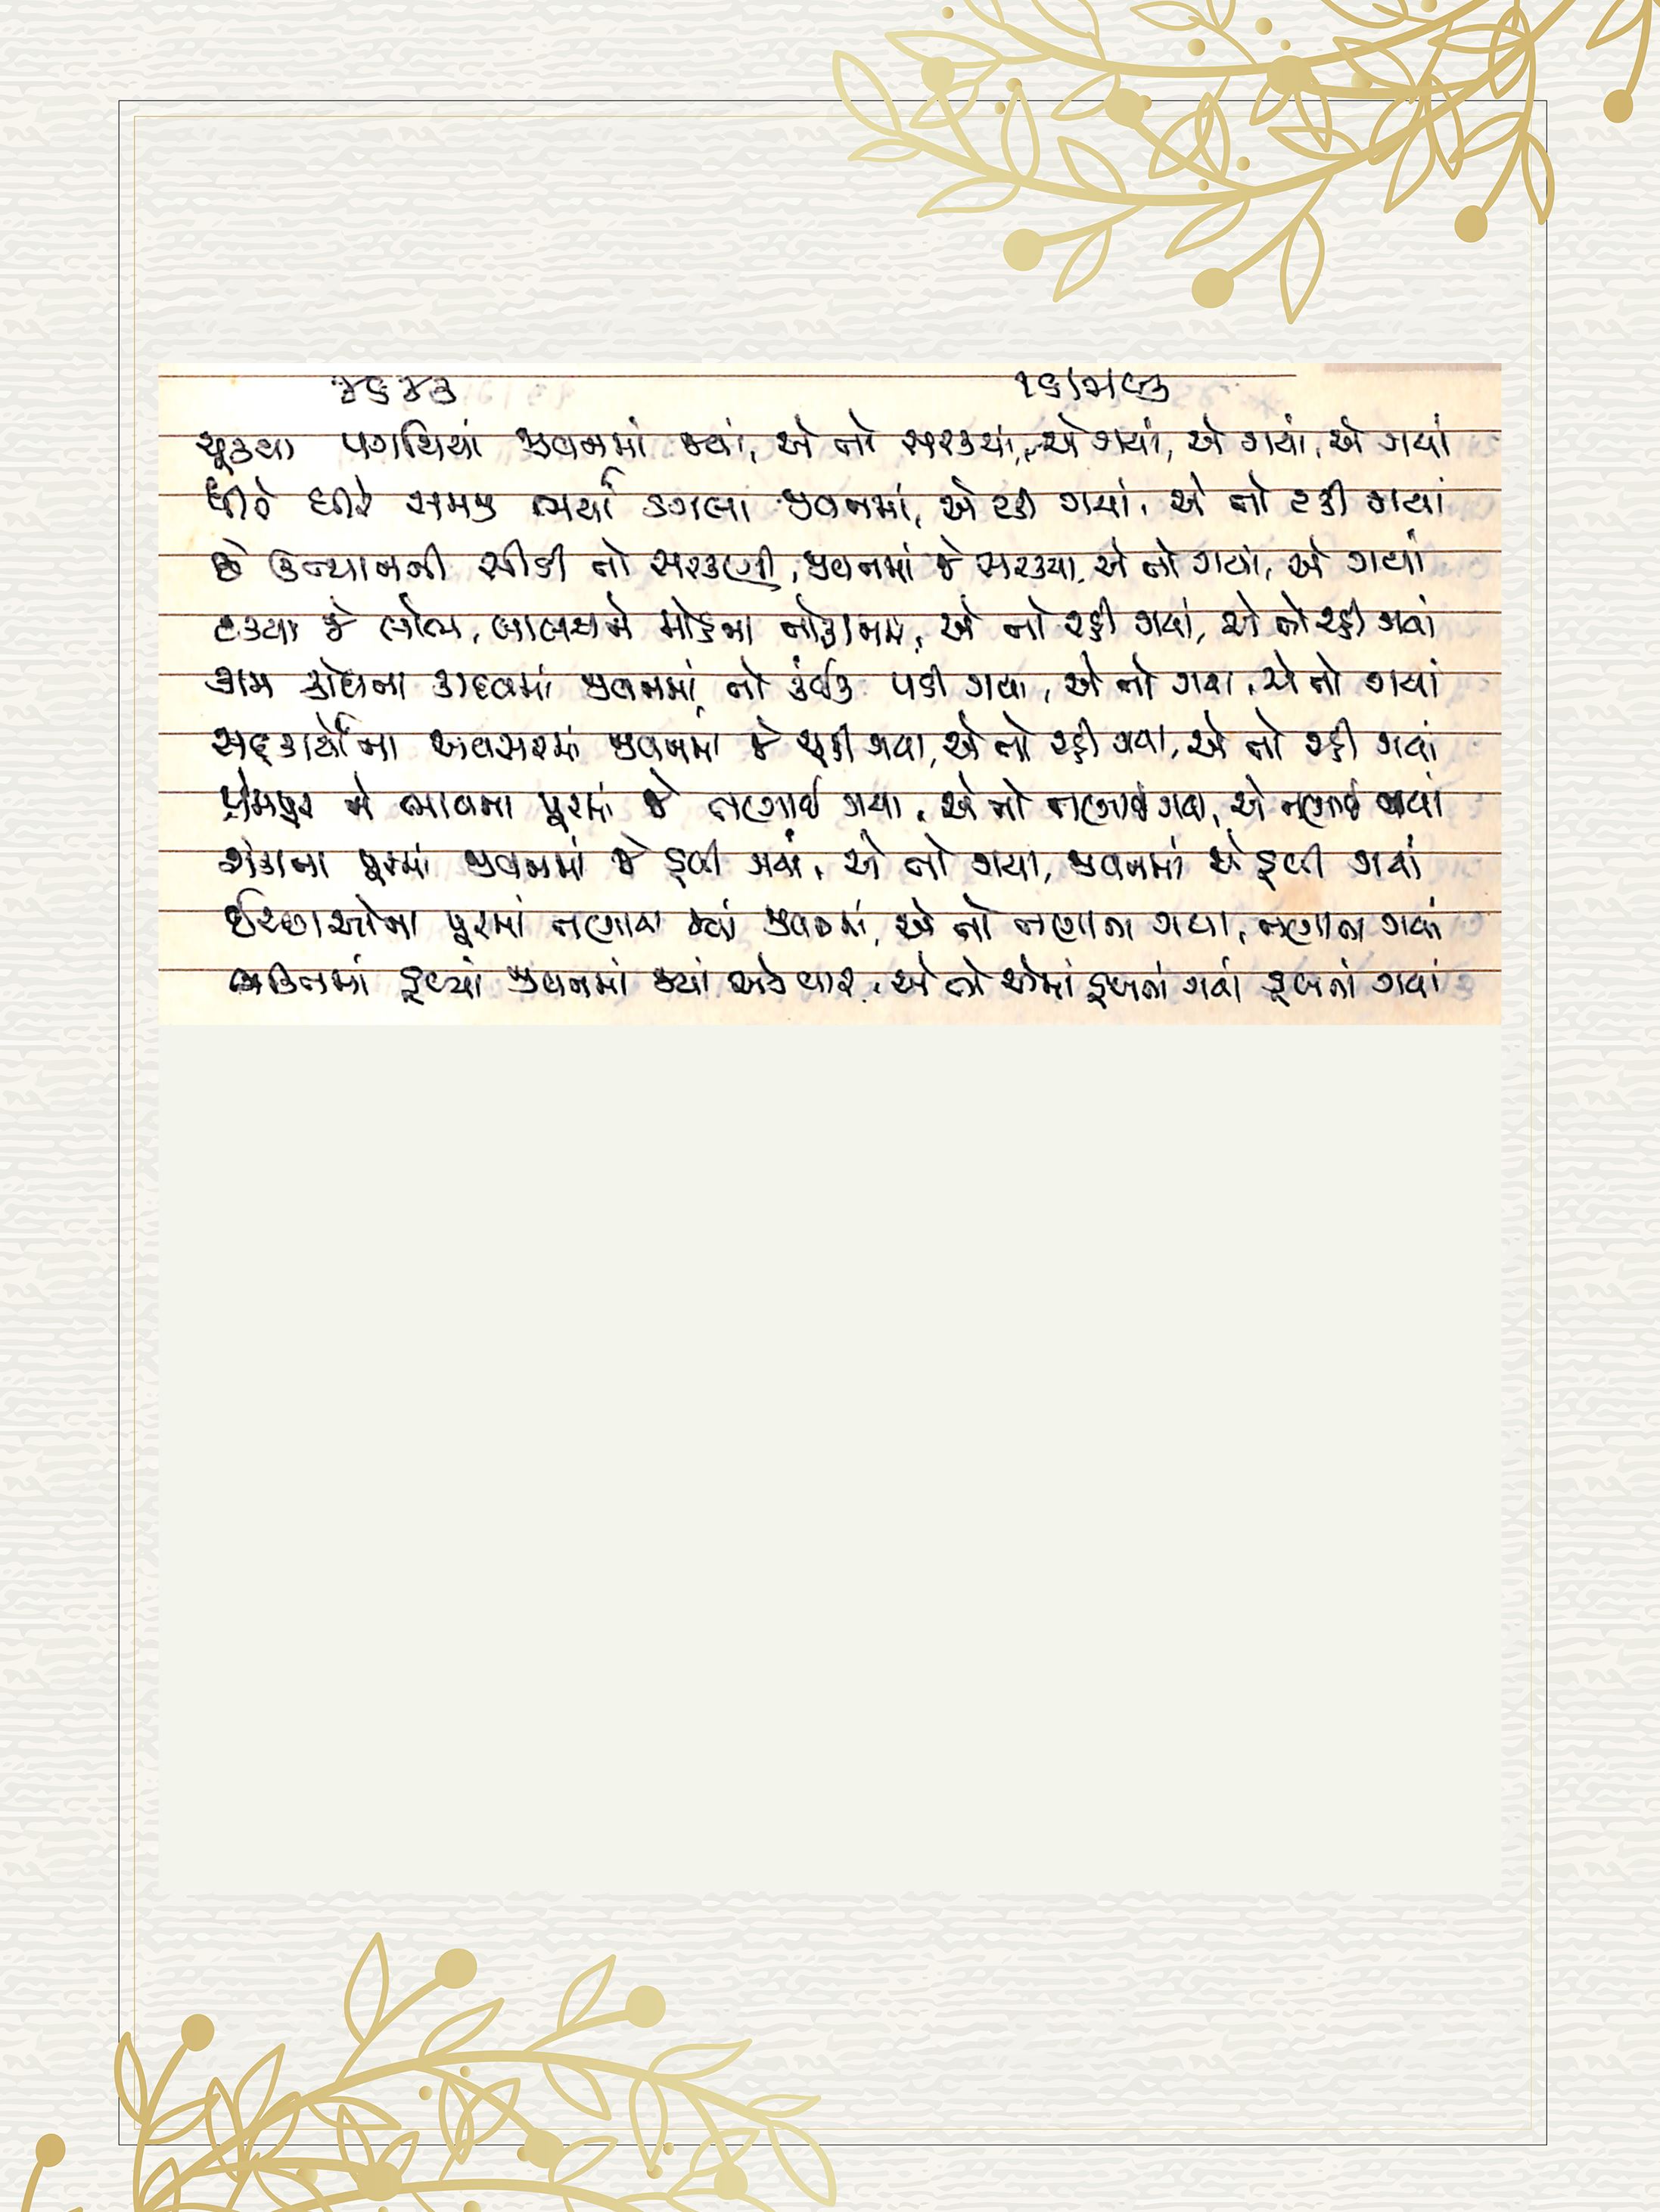 ૪૬૪૩
ચૂક્યા પગથિયાં જીવનમાં જ્યાં, એ તો સરક્યાં, એ ગયાં, એ ગયાં, એ ગયાં
ધીરે ધીરે સમજી ભર્યાં ડગલા જીવનમાં, એ ટકી ગયાં, એ તો ટકી ગયાં
છે ઉત્થાનની સીડી તો સરકણી, જીવનમાં જે સરક્યા, એ તો ગયાં, એ ગયાં
ટક્યા જે લોભ, લાલચને મોહના તોફાનમાં, એ તો રહી ગયાં, એ તો રહી ગયાં
કામ ક્રોધના કાદવમાં જીવનમાં તો પડી ગયા, એ તો ગયા, એ તો ગયાં
સદ્કાર્યોના અવસરમાં જીવનમાં જે ચૂકી ગયા, એ તો રહી ગયા, એ તો રહી ગયાં
ને ભાવના પૂરમાં જે તણાઈ ગયા, એ તો તણાઈ ગયા, એ તણાઈ ગયાં
શંકાના પૂરમાં જીવનમાં જે ડૂબી ગયાં, એ તો ગયા, જીવનમાં એ ડૂબી ગયાં
ઈચ્છાઓના પૂરમાં તણાયા જ્યાં જીવનમાં, એ તો તણાતા ગયા, તણાતા ગયાં
ભક્તિમાં ડૂબ્યાં જીવનમાં જ્યાં એકવાર, એ તો એમાં ડૂબતાં ગયાં ડૂબતાં ગયાં